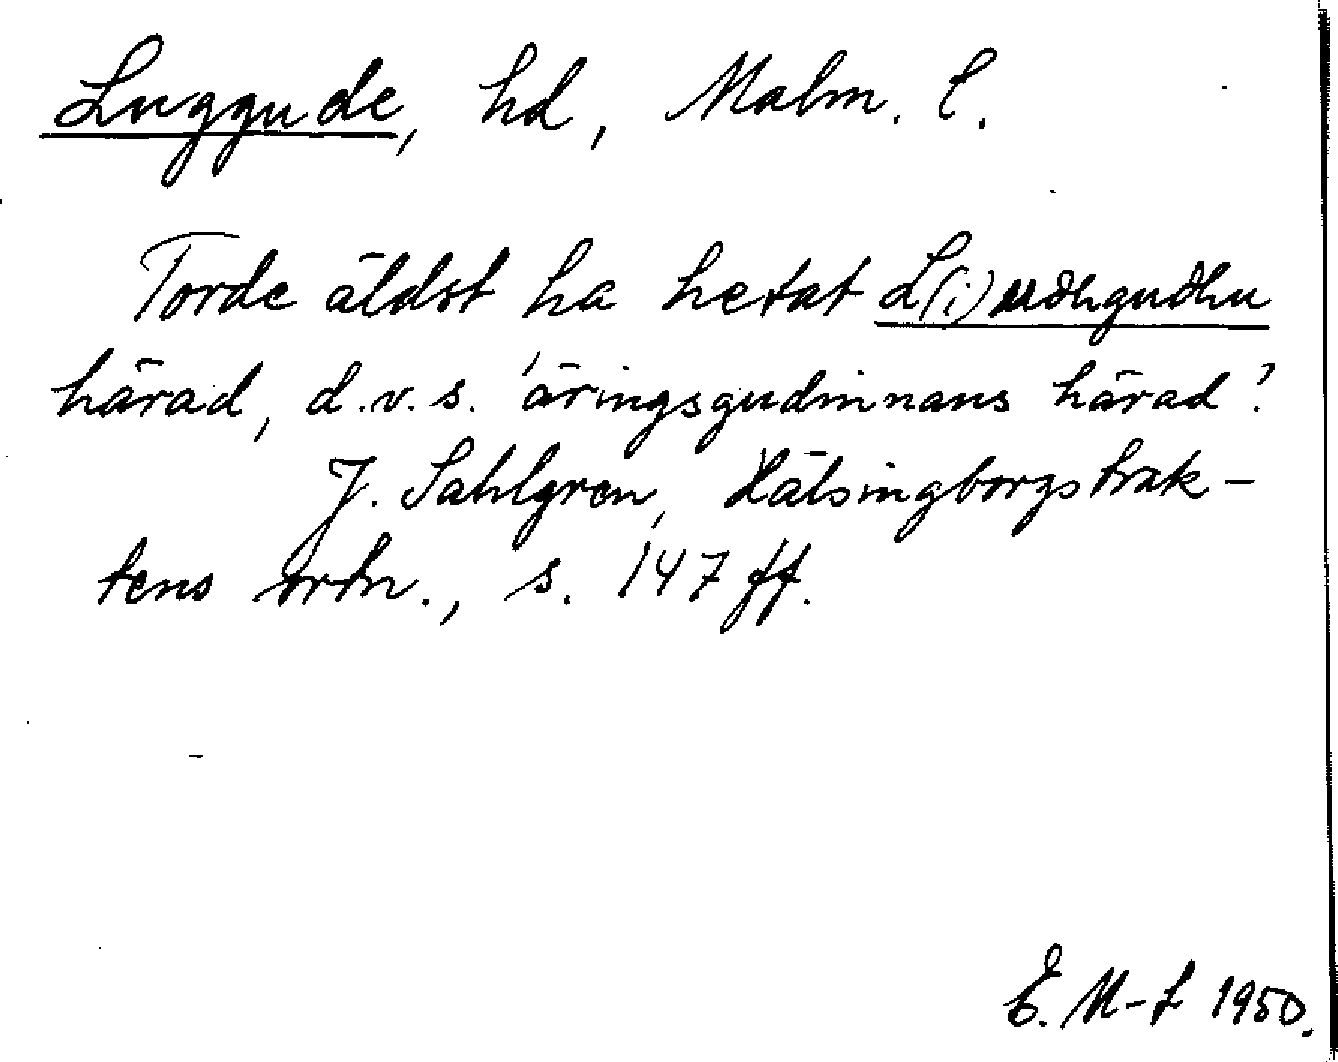 Luggude, hd, Malm. l.
Torde äldst ha hetat L(i)udhgudhu
härad, d.v.s. 'äringsgudinnans härad'.
J. Sahlgren, Hälsingborgstrak-
tens ortn., s. 147 ff.
E. M-L 1950.